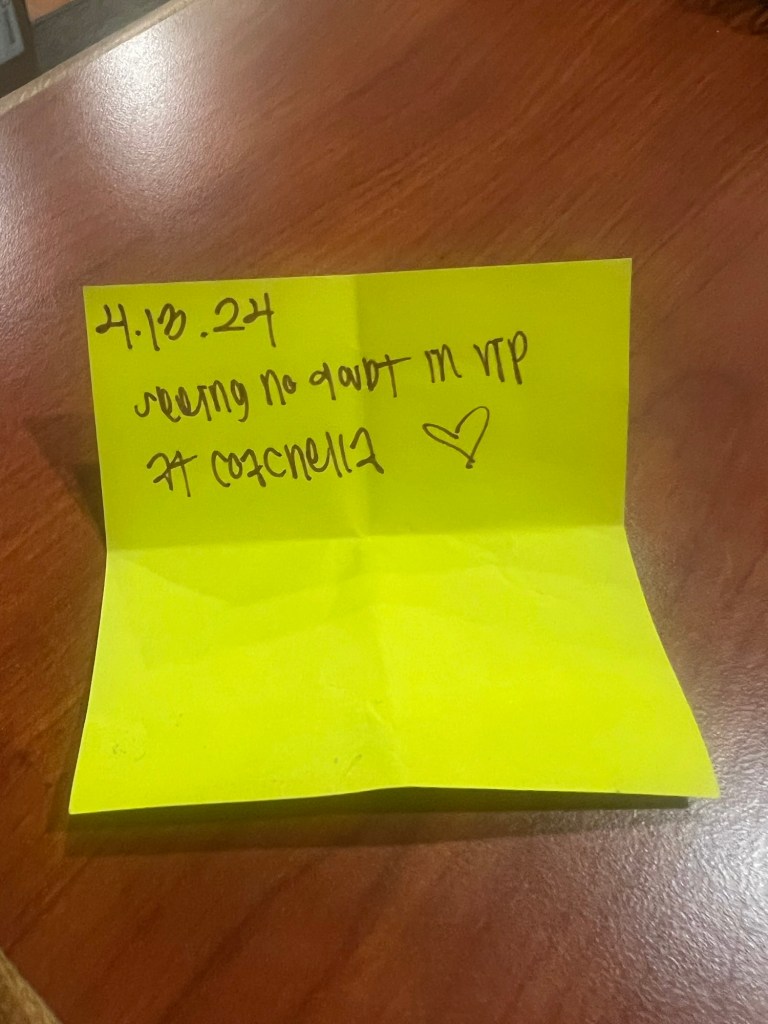 4.13.24
seeing no doubt in VIP
at coachella ♡